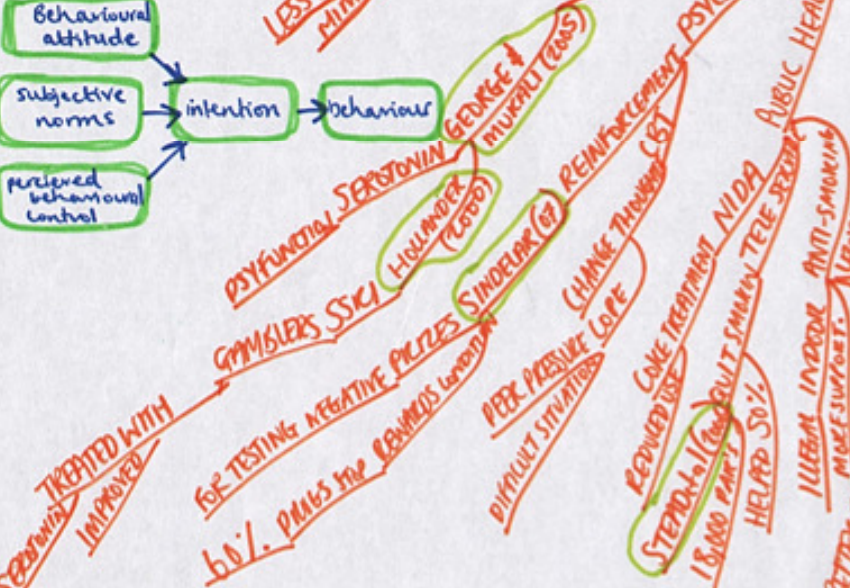 Behavioural
attitude
subjective
norms
percieved
behavioural
control
intention
behaviour
LESS
GEORGE &
MURALI (2005)
DSYFUNCTIONAL SEROTONIN
HOLLANDER
(2000)
GAMBLERS SSRI
TREATED WITH
SEROTONIN
IMPROVED
REINFORCEMENT PSYC
SINDELAR (07)
FOR TESTING NEGATIVE PRIZES
60% DRUGS STOP REWARDS CONDITION
CBT
CHANGE THOUGHT
COPE
PEER PRESSURE
DIFFICULT SITUATION
PUBLIC HEA
NIDA
COKE TREATMENT
REDUCED USE
QUIT SMOKIN TELE SERVICE
STEAD et al
18,000 PAR'S
HELPED 50%
ANTI-SMOKING
ILLEGAL INDOOR
MORE SUPPORT.